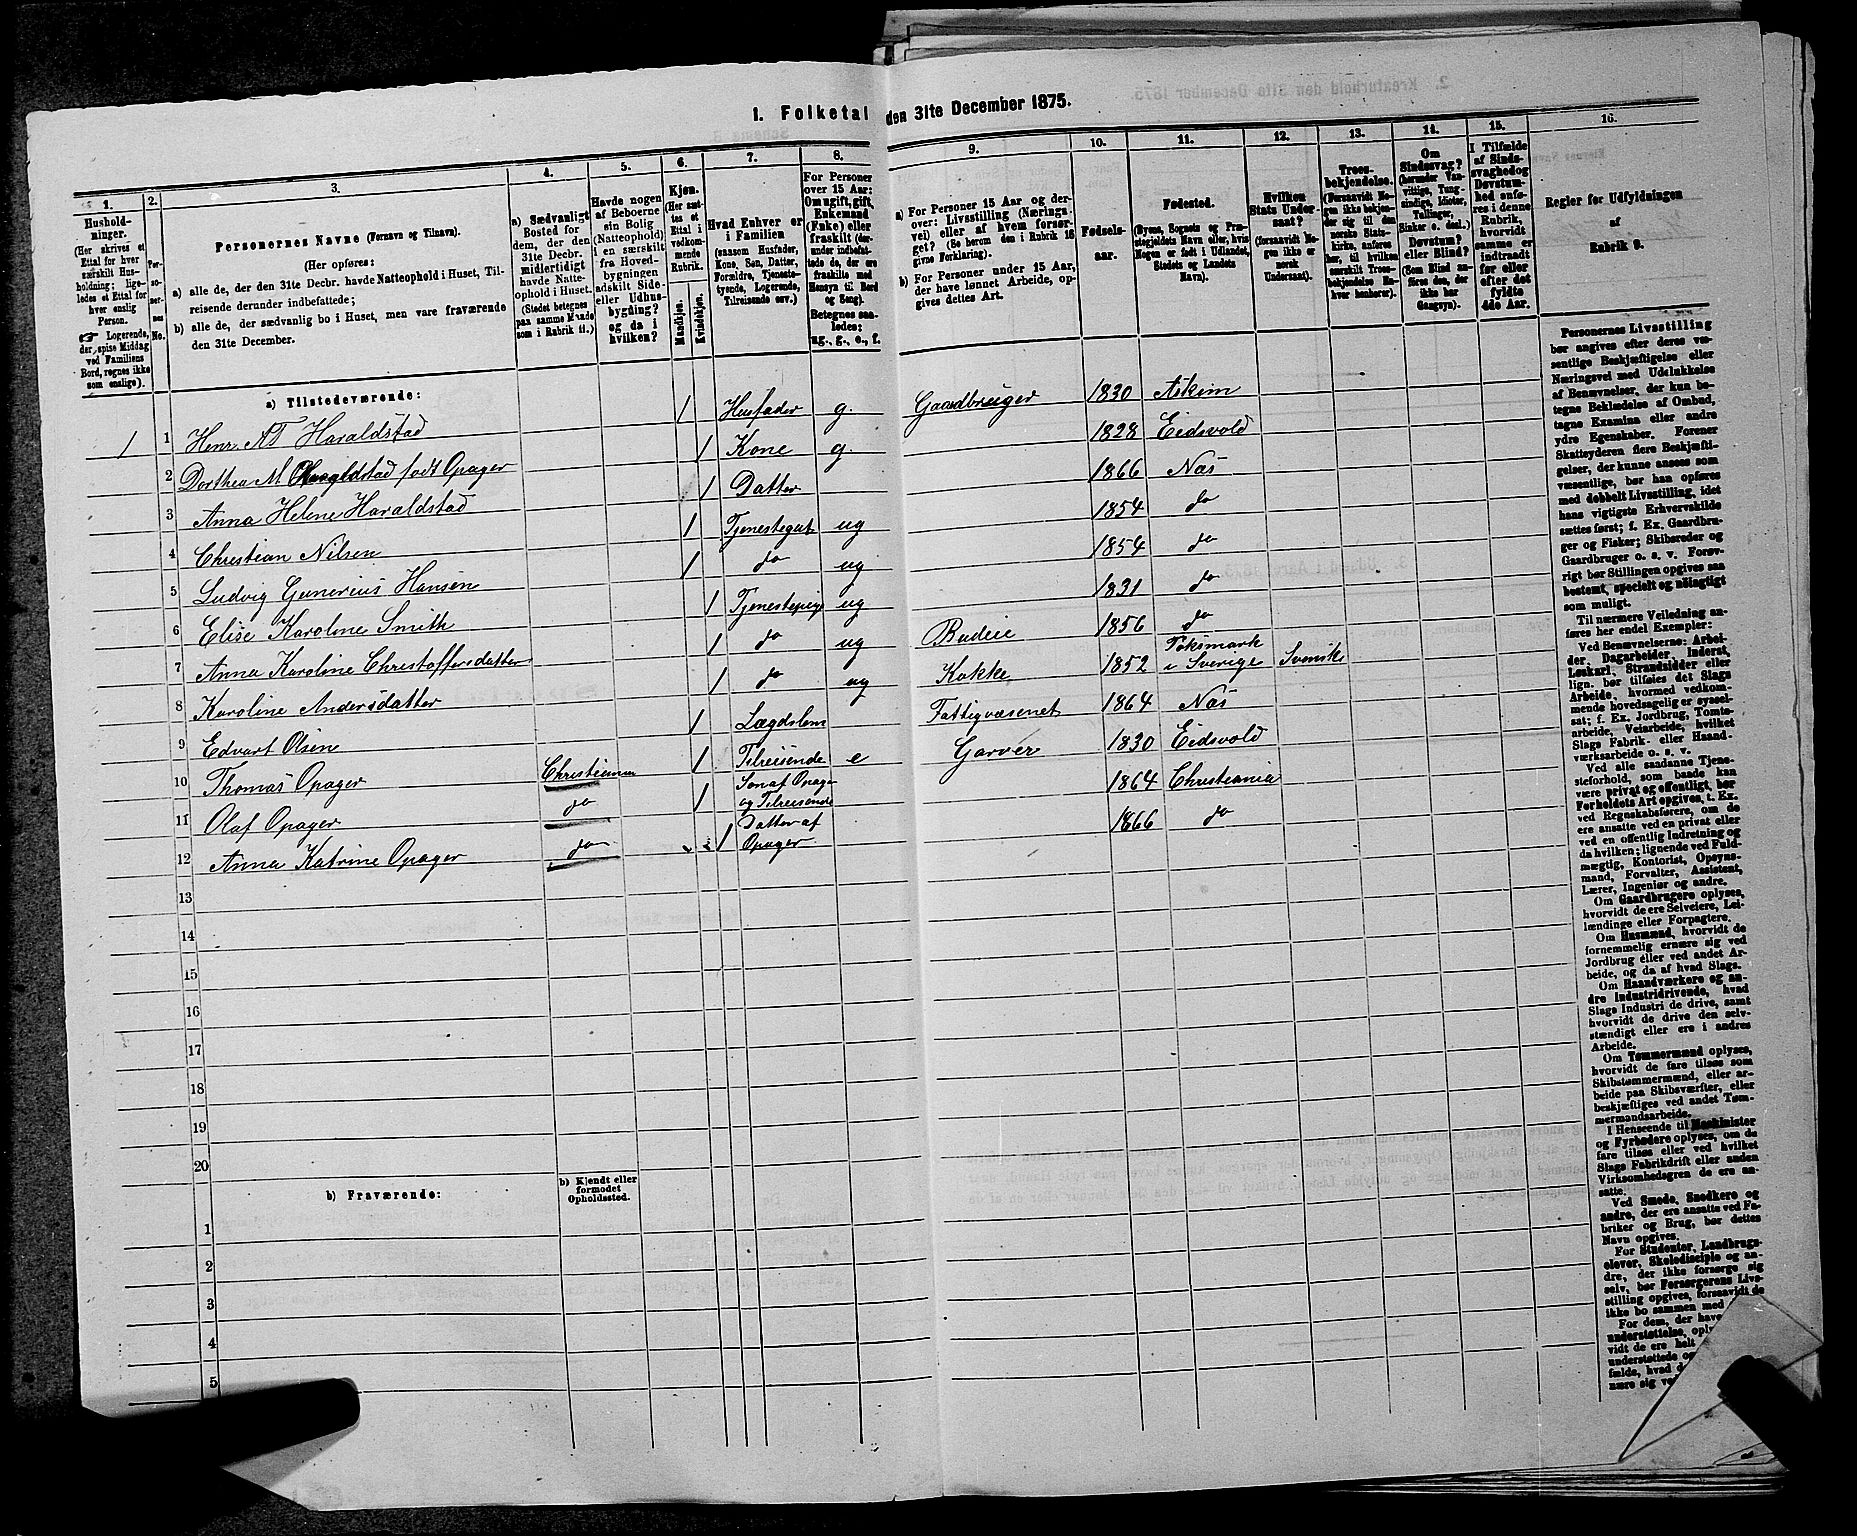 1. Folketal den 31te December 1875.
1.
2.
3.
4.
5.
6.
7.
8.
9.
10.
11.
12.
13.
14.
15.
16.
Hushold-
ninger.
(Her skrives et
Ettal for hver
særskilt Hus-
holdning; lige-
ledes et Ettal for
hver enslig
Person.
☞ Logerende,
der spise Middag
ved Familiens
Bord, regnes ikke
som enslige).
Per-
so-
ner-
nes
No.
Personernes Navne (Fornavn og Tilnavn).
(Her opføres:
a) alle de, der den 31te Decbr. havde Natteophold i Huset, Til-
reisende derunder indbefattede;
b) alle de, der sædvanlig bo i Huset, men vare fraværende
den 31te December.
a) Sædvanligt
Bosted for
dem, der den
31te Decbr.
midlertidigt
havde Natte-
ophold i Huset.
(Stedet betegnes
paa samme Maade
som i Rubrik 11.)
Havde nogen
af Beboerne
sin Bolig
(Natteophold)
i en særskilt
fra Hoved-
bygningen
adskilt Side-
eller Udhus-
bygning?
og da i
hvilken?
Kjøn.
(Her sæt-
tes et
Ettal i
vedkom-
mende
Rubrik.
Mandkjøn.
Kvindekjøn.
Hvad Enhver er
i Familien
(saasom Husfader,
Kone, Søn, Datter,
Forældre, Tjeneste-
tyende, Logerende,
Tilreisende osv.)
For Personer
over 15 Aar:
Om ugift, gift,
Enkemand
(Enke) eller
fraskilt (der-
under indbefat-
tede de, der ere
fraskilte med
Hensyn til Bord
og Seng).
Betegnes saa-
ledes:
ug., g., e., f.
a) For Personer 15 Aar og der-
over: Livsstilling (Nærings-
vei) eller af hvem forsør-
get? (Se herom den i Rubrik 16
givne Forklaring).
b) For Personer under 15 Aar,
der have lønnet Arbeide, op-
gives dettes Art.
Fødsels-
aar.
Fødested.
(Byens, Sognets og Præ-
stegjeldets Navn eller, hvis
Nogen er født i Udlandet,
Stedets og Landets
Navn).
Hvilken
Stats Under-
saat?
(forsaavidt No-
gen ikke er
norsk
Undersaat).
Troes-
bekjendelse.
(Forsaavidt No-
gen ikke beken-
der sig til den
norske Stats-
kirke, anføres
her, til hvilken
særskilt Troes-
bekjendelse En-
hver henhører).
Om
Sindssvag?
(herunder Van-
vittige, Tung-
sindige, Idioter,
Tullinger,
Sinker o. desl.)
Døvstum?
eller Blind?
(Som Blind an-
føres den, der
ikke har
Gangsyn).
I Tilfælde
af Sinds-
svaghed og
Døvstum-
hed anfø-
res i denne
Rubrik,
hvorvidt
samme er
indtraadt
før eller
efter det
fyldte
4de Aar.
Regler for Udfyldningen
af
Rubrik 9.
a) Tilstedeværende:
1 1 Henr. AT Haraldstad 1 Husfader g. Gaardbruger 1830 Askim
2 Dorthea M Haraldstad født Opager 1 Kone g. 1828 Eidsvold
3 Anna Helene Haraldstad 1 Datter 1866 Nås
4 Christian Nilsen 1 Tjenestegut ug 1854 do
5 Ludvig Gunerius Hansen 1 do ug 1854 do
6 Elise Karoline Smith 1 Tjenestepige ug 1831 do
7 Anna Karoline Christoffersdatter 1 do ug Budeie 1856 do
8 Karoline Andersdatter 1 do ug Kokke 1852 Töksmark i Sverige Svensk
9 Edvart Olsen 1 Lægdslem Fattigvæsenet 1864 Nås
10 Thomas Opager Christiania 1 Tilreisende e Garver 1830 Eidsvold
11 Olaf Opager do 1 Søn af Opager og Tilreisende 1864 Christiania
12 Anna Katrine Opager do 1 Datter af Opager 1866 do
13
14
15
16
17
18
19
20
b) Fraværende:
b) Kjendt eller
formodet
Opholdssted.
1
2
3
4
5
Personernes Livsstilling
bør angives efter deres væ-
sentlige Beskjæftigelse eller
Næringsvei med Udelukkelse
af Benævnelser, der kun be-
tegne Beklædelse af Ombud,
tagne Examina eller andre
ydre Egenskaber. Forener
Skatteyderen flere Beskjæfti-
gelser, der kunne ansees som
væsentlige, bør han opføres
med dobbelt Livsstilling, idet
hans vigtigste Erhvervskilde
sættes først; f. Ex. Gaardbru-
ger og Fisker; Skibsreder og
Gaardbruger o. s. v. Forøv-
rigt bør Stillingen opgives saa
bestemt, specielt og nøiagtigt
som muligt.
Til nærmere Veiledning an-
føres her endel Exempler:
Ved Benævnelserne: Arbei-
der, Dagarbeider, Inderst,
Løskarl, Strandsidder eller
lign. bør tilføies det Slags
Arbeide, hvormed vedkom-
mende hovedsagelig er syssel-
sat; f. Ex. Jordbrug, Tomte-
arbeide, Veiarbeide, hvilket
Slags Fabrik- eller Haand-
værksarbeide o. s. v.
Ved alle saadanne Tjene-
steforhold, som baade kan
være privat og offentligt, bør
Forholdets Art opgives, t. Ex.
ved Regnskabsførere, om de
ere ansatte ved en privat eller
ved en offentlig Indretning og
da hvilken; lignende ved Fuld-
mægtig, Kontorist, Opsyns-
mand, Forvalter, Assistent,
Lærer, Ingeniør og andre.
Om Gaardbrugere oplyses,
hvorvidt de ere Selveiere, Lei-
lændinge eller Forpagtere.
Om Husmænd, hvorvidt de
fornemmelig ernære sig ved
Jordbrug eller ved andet Ar-
beide, og da af hvad Slags.
Om Haandværkere og an-
dre Industridrivende, hvad
Slags Industri de drive, samt
hvorvidt de drive den selv-
stændigt eller ere i andres
Arbeide.
Om Tømmermænd oplyses,
hvorvidt de fare tilsøs som
Skibstømmermænd, eller ar-
beide paa Skibsværfter, eller
beskjæftiges ved andet Tøm-
mermandsarbeide.
I Henseende til Maskinister
og Fyrbødere oplyses, om de
fare tilsøs eller ved hvilket
Slags Fabrikdrift eller anden
Virksomhedsgren de ere an-
satte.
Ved Smede, Snedkere og
andre, der ere ansatte ved Fa-
briker og Brug, bør dettes
Navn opgives.
For Studenter, Landbrugs-
elever, Skoledisciple og an-
dre, der ikke forsørge sig
selv, bør Forsørgerens Livs-
stilling opgives, forsaavidt de
ikke bo sammen med
For dem, der have
understøttelse, opl
vidt de ere helt
understøttede og
fælde, hvad d
nære sig ve